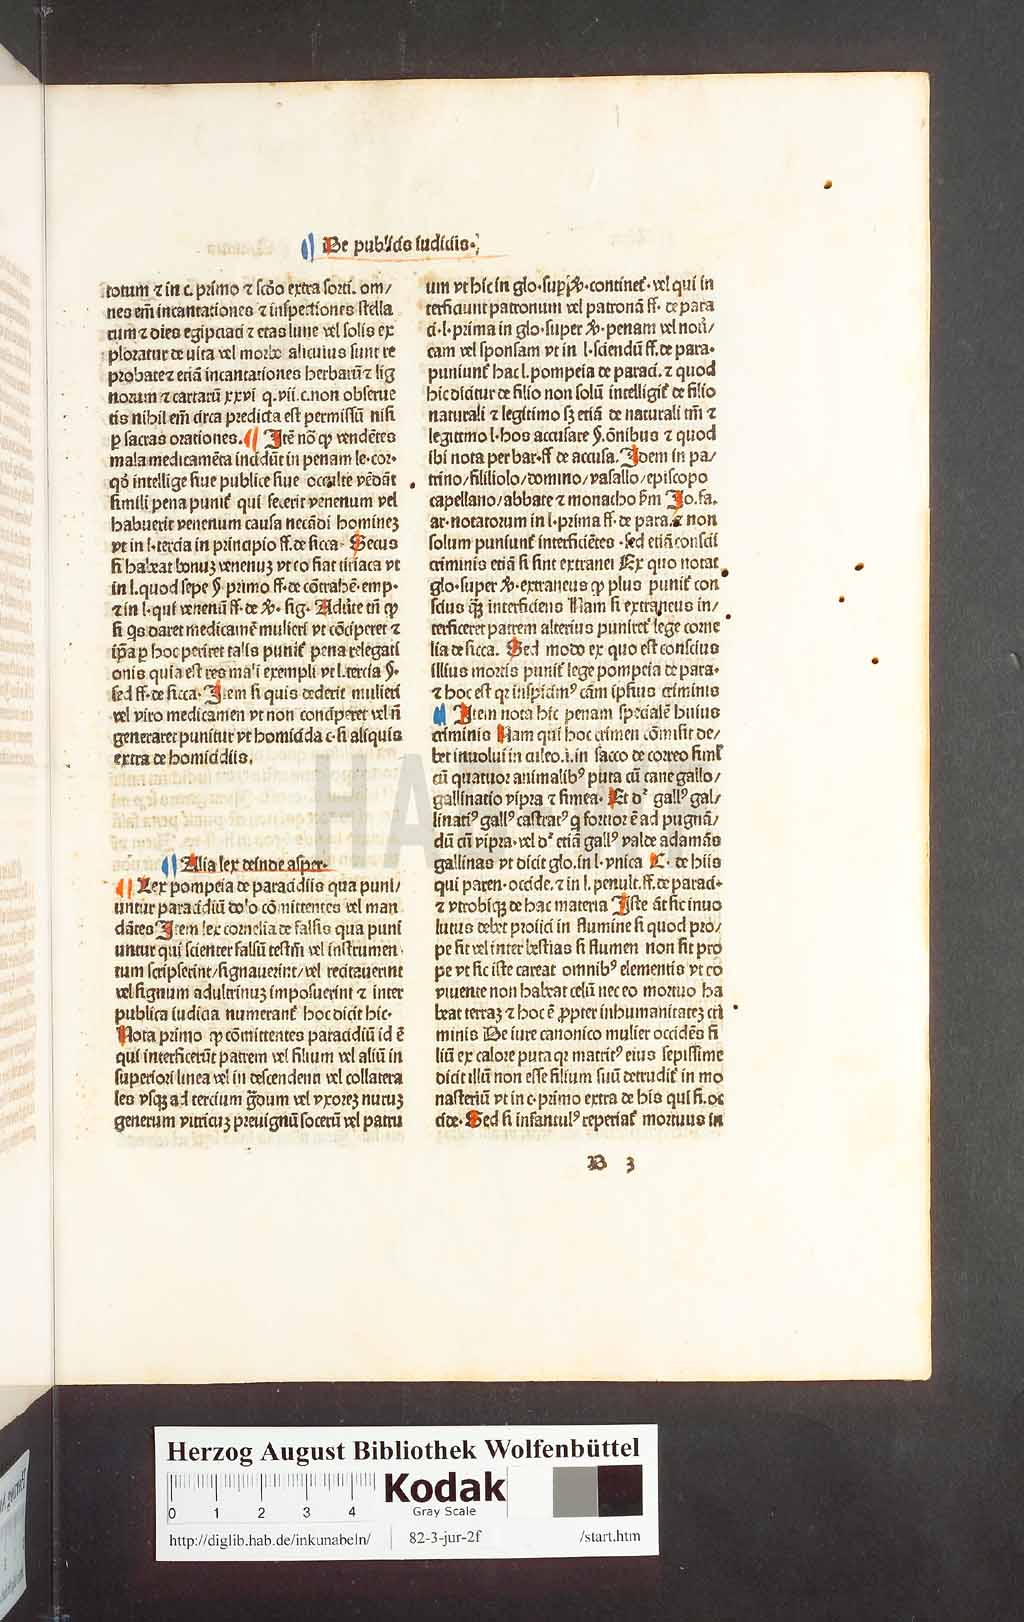 De publicis iudiciis.
totum ⁊ in c. primo ⁊ scďo extra sorti. om/
nes em̄ incantationes ⁊ inspectiones stella
rum ⁊ dies egipciaci ⁊ etas lune vel solis ex
ploratur de vita vel morbo alicuius sunt re
probate ⁊ etiā incantationes herbarū ⁊ lig
norum ⁊ cartarū xxvi q. vii. c. non obserue
tis nihil em̄ circa predicta est permissū nisi
ꝑ sacras orationes. Itē nō ꝙ vendētes
mala medicamēta incidūt in penam le. cor.
qď intellige siue publice siue occulte vēdāt
simili pena puniūt qui fecerit venenum vel
habuerit venenum causa necādi hominēꝫ
vt in l. tercia in principio ff. de sicca. Secus
si habeat bonuꝫ venenuꝫ vt eo fiat tiriaca vt
in l. quod sepe §. primo ff. de cōtrahē. emp.
⁊ in l. qui venenū ff. de ꝟ. sig. Aduerte tn̄ ꝙ
si q̄s daret medicamē mulieri vt cōciperet ⁊
ip̄a ꝑ hoc periret talis puniť pena relegati
onis quia est res mali exempli vt l. tercia §.
sed ff. de sicca. Item si quis dederit mulieri
vel viro medicamen vt non conciperet vel n̄
generaret punitur vt homicida c. si aliquis
extra de homicidiis.
Alia lex deinde asper.
Lex pompeia de paracidiis qua puni/
untur paracidiū dolo cōmittentes vel man
dātes Item lex cornelia de falsis qua puni
untur qui scienter falsū testm̄ vel instrumen
tum scripserint/signauerint/vel recitauerint
vel signum adulterinuꝫ imposuerint ⁊ inter
publica iudicia numerant̄ hoc dicit hic.
Nota primo ꝙ cōmittentes paracidiū id ē
qui interficerūt patrem vel filium vel aliū in
superiori linea vel in descendenti vel collatera
les vsqꝫ ad tercium gḋum vel vxoreꝫ nuruꝫ
generum vitricuꝫ preuignū socerū vel patru
um vt hic in glo. sup ꝟ. continet̄. vel qui in
terficiunt patronum vel patronā ff. de para
ci. l. prima in glo. super ꝟ. penam vel nou̇/
cam vel sponsam vt in l. sciendū ff. de para.
puniunt̄ hac l. pompeia de paraci. ⁊ quod
hic dicitur de filio non solū intelligit̄ de filio
naturali ⁊ legitimo sꝫ etiā de naturali tm̄ ⁊
legitimo l. hos accusare §. ōnibus ⁊ quod
ibi nota per bar. ff de accusa. Idem in pa/
trino/fililiolo/domino/vasallo/episcopo
capellano/abbate ⁊ monacho ẜm Jo. fa.
ar. notatorum in l. prima ff. de para. ⁊ non
solum puniunt̄ interficiētes. sed etiā conscii
criminis etiā si sint extranei Ex quo notat
glo. super ꝟ. extraneus ꝙ plus punit̄ con
scius q̄ꝫ interficiens Nam si extraneus in/
terficeret patrem alterius puniret̄ lege corne
lia de sicca. Sed modo ex quo est conscius
illius mortis punit̄ lege pompeia de para.
⁊ hoc est qr inspicimꝰ cām ipsius criminis
Item nota hic penam specialē huius
criminis Nam qui hoc crimen cōmisit de/
bet inuolui in culeo. i. in sacco de correo siml̄
cū quatuor animalibꝰ puta cū cane gallo/
gallinatio vipra ⁊ simea. Et dꝛ gallꝰ gal/
linatiꝰ gallꝰ castratꝰ q̄ fortior ē ad pugnā/
dū cū vipra. vel dꝛ etiā gallꝰ valde adamās
gallinas vt dicit glo. in l. vnica C. de hiis
qui paren. occide. ⁊ in l. penult. ff. de paraci.
⁊ vtrobiqꝫ de hac materia Iste āt sic inuo
lutus debet proiici in flumine si quod pro/
pe sit vel inter bestias si flumen non sit pro
pe vt sic iste careat omnibꝰ elementis vt eo
viuente non habeat celū nec eo mortuo ha
beat terraꝫ ⁊ hoc ē ꝓpter inhumanitateꝫ cri
minis De iure canonico mulier occidēs fi
liū ex calore puta qr maritꝰ eius sepissime
dicit illū non esse filium suū detrudit̄ in mo
nasteriū vt in c. primo extra de his qui fi. oc
cide. Sed si infantulꝰ reperiat̄ mortuus in
B 3
Herzog August Bibliothek Wolfenbüttel
0 1 2 3 4
Kodak
Gray Scale
http://diglib.hab.de/inkunabeln/ 82-3-jur-2f /start.htm